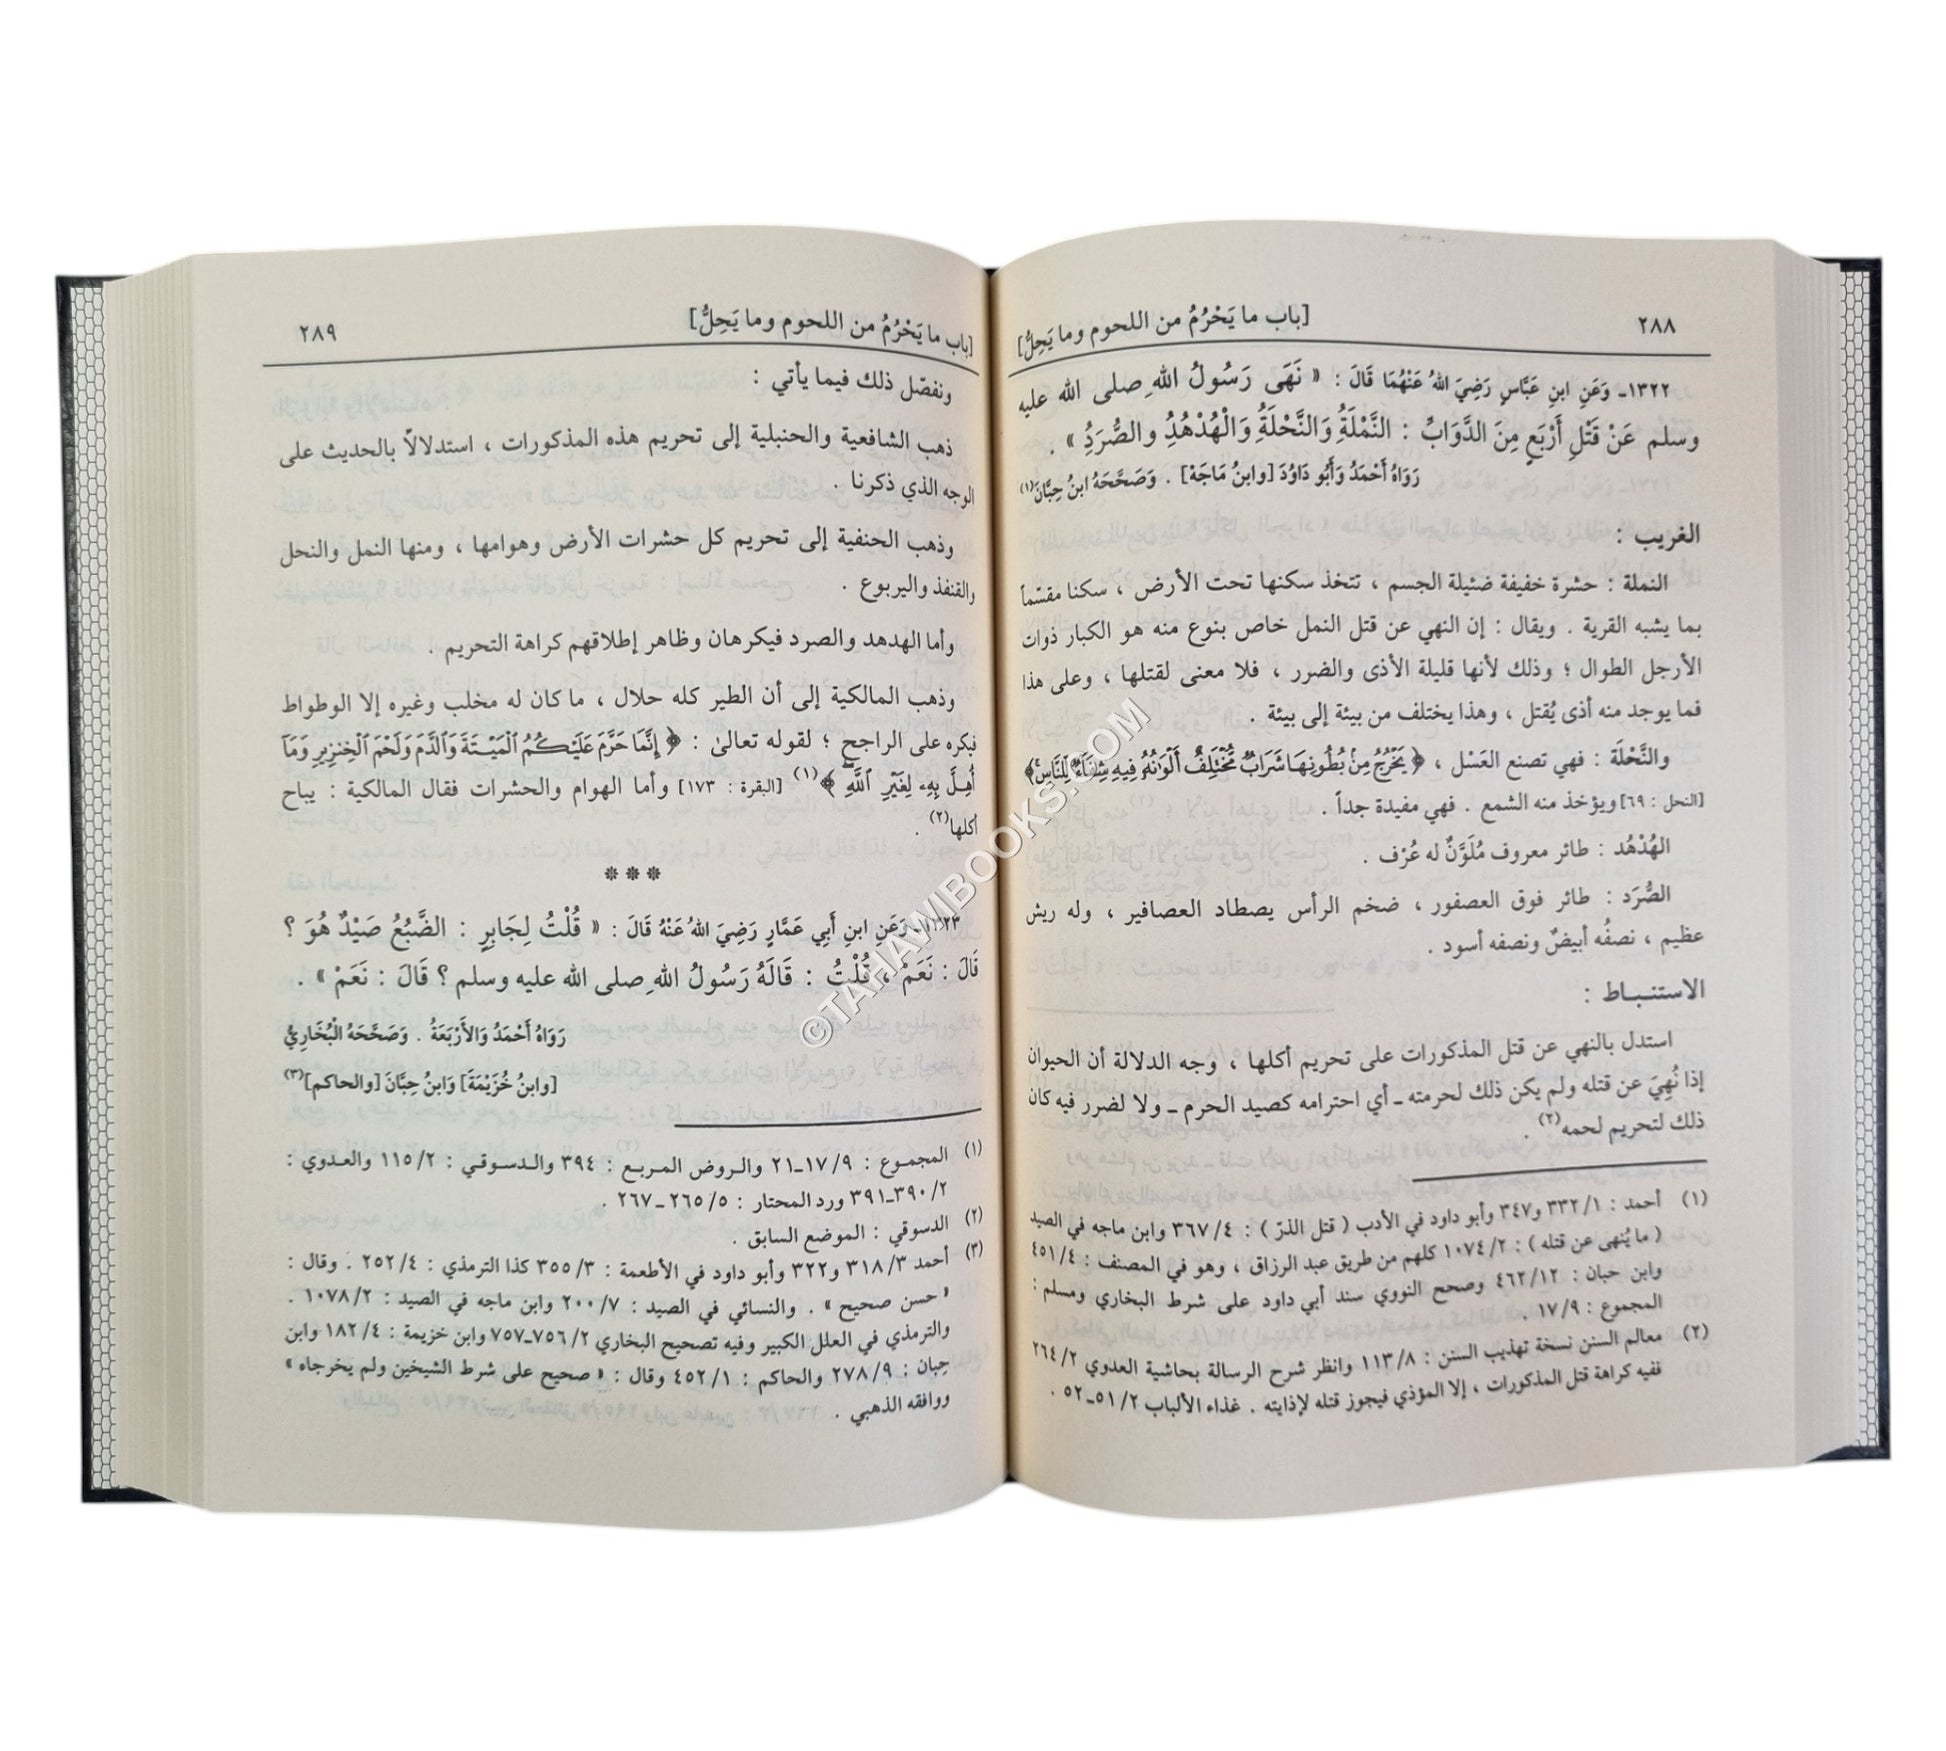 ٢٨٨
[باب ما يَحْرُمُ من اللحوم وما يَحِلُّ]
١٣٢٢ـ وَعَنِ ابنِ عَبَّاسٍ رَضِيَ اللهُ عَنْهُمَا قَالَ : « نَهَى رَسُولُ اللهِ صلى الله عليه
وسلم عَنْ قَتْلِ أَرْبَعٍ مِنَ الدَّوَابِّ : النَّمْلَةُِ وَالنَّحْلَةُِ وَالْهُدْهُدُِ والصُّرَدُِ » .
رَوَاهُ أَحْمَدُ وَأَبُو دَاوُدَ [وابنُ مَاجَهْ] . وَصَحَّحَهُ ابنُ حِبَّانَ(١)
الغريب :
النملة : حشرة خفيفة ضئيلة الجسم ، تتخذ سكنها تحت الأرض ، سكنا مقسّماً
بما يشبه القرية . ويقال : إن النهي عن قتل النمل خاص بنوع منه هو الكبار ذوات
الأرجل الطوال ؛ وذلك لأنها قليلة الأذى والضرر ، فلا معنى لقتلها ، وعلى هذا
فما يوجد منه أذى يُقتل ، وهذا يختلف من بيئة إلى بيئة .
والنَّحْلَة : فهي تصنع العَسْل ، ﴿ يَخْرُجُ مِنْ بُطُونِهَا شَرَابٌ مُّخْتَلِفٌ أَلْوَانُهُ فِيهِ شِفَاءٌ لِلنَّاسِ ﴾
[النحل : ٦٩] ويؤخذ منه الشمع . فهي مفيدة جداً .
الهُدْهُد : طائر معروف مُلَوَّنٌ له عُرْف .
الصُّرَد : طائر فوق العصفور ، ضخم الرأس يصطاد العصافير ، وله ريش
عظيم ، نصفُه أبيضٌ ونصفه أسود .
الاستنباط :
استدل بالنهي عن قتل المذكورات على تحريم أكلها ، وجه الدلالة أن الحيوان
إذا نُهِيَ عن قتله ولم يكن ذلك لحرمته ـ أي احترامه كصيد الحرم ـ ولا لضرر فيه كان
ذلك لتحريم لحمه(٢) .
(١) أحمد : ٣٣٢/١ و٣٤٧ وأبو داود في الأدب ( قتل الذرّ ) : ٣٦٧/٤ وابن ماجه في الصيد
( ما يُنهى عن قتله ) : ١٠٧٤/٢ كلهم من طريق عبد الرزاق ، وهو في المصنف : ٤٥١/٤
وابن حبان : ٤٦٢/١٢ وصحح النووي سند أبي داود على شرط البخاري ومسلم :
المجموع : ١٧/٩ .
(٢) معالم السنن نسخة تهذيب السنن : ١١٣/٨ وانظر شرح الرسالة بحاشية العدوي ٢٦٤/٢
ففيه كراهة قتل المذكورات ، إلا المؤذي فيجوز قتله لإذايته . غذاء الألباب ٥١/٢ـ٥٢ .
[باب ما يَحْرُمُ من اللحوم وما يَحِلُّ]
٢٨٩
ونفصّل ذلك فيما يأتي :
ذهب الشافعية والحنبلية إلى تحريم هذه المذكورات ، استدلالاً بالحديث على
الوجه الذي ذكرنا .
وذهب الحنفية إلى تحريم كل حشرات الأرض وهوامها ، ومنها النمل والنحل
والقنفذ واليربوع .
وأما الهدهد والصرد فيكرهان وظاهر إطلاقهم كراهة التحريم .
وذهب المالكية إلى أن الطير كله حلال ، ما كان له مخلب وغيره إلا الوطواط
فيكره على الراجح ؛ لقوله تعالىٰ : ﴿ إِنَّمَا حَرَّمَ عَلَيْكُمُ الْمَيْتَةَ وَالدَّمَ وَلَحْمَ الْخِنزِيرِ وَمَا
أُهِلَّ بِهِ لِغَيْرِ اللَّهِ ﴾(١) [البقرة : ١٧٣] وأما الهوام والحشرات فقال المالكية : يباح
أكلها(٢) .
❋ ❋ ❋
١٣٢٣ـ وَعَنِ ابنِ أَبِي عَمَّارٍ رَضِيَ اللهُ عَنْهُ قَالَ : « قُلْتُ لِجَابِرٍ : الضَّبُعُ صَيْدٌ هُوَ ؟
قَالَ : نَعَمْ ، قُلْتُ : قَالَهُ رَسُولُ اللهِ صلى الله عليه وسلم ؟ قَالَ : نَعَمْ » .
رَوَاهُ أَحْمَدُ وَالأَرْبَعَةُ . وَصَحَّحَهُ الْبُخَارِيُّ
[وابنُ خُزَيْمَةَ] وَابنُ حِبَّانَ [والحاكم](٣)
(١) المجموع : ١٧/٩ـ٢١ والروض المربع : ٣٩٤ والدسوقي : ١١٥/٢ والعدوي :
٣٩٠/٢ـ٣٩١ ورد المحتار : ٢٦٥/٥ ـ ٢٦٧ .
(٢) الدسوقي : الموضع السابق .
(٣) أحمد ٣١٨/٣ و٣٢٢ وأبو داود في الأطعمة : ٣٥٥/٣ كذا الترمذي : ٢٥٢/٤ . وقال :
« حسن صحيح » . والنسائي في الصيد : ٢٠٠/٧ وابن ماجه في الصيد : ١٠٧٨/٢ .
والترمذي في العلل الكبير وفيه تصحيح البخاري ٧٥٦/٢ـ٧٥٧ وابن خزيمة : ١٨٢/٤ وابن
حِبان : ٢٧٨/٩ والحاكم : ٤٥٢/١ وقال : « صحيح على شرط الشيخين ولم يخرجاه »
ووافقه الذهبي .
©TAHAWIBOOKS.COM